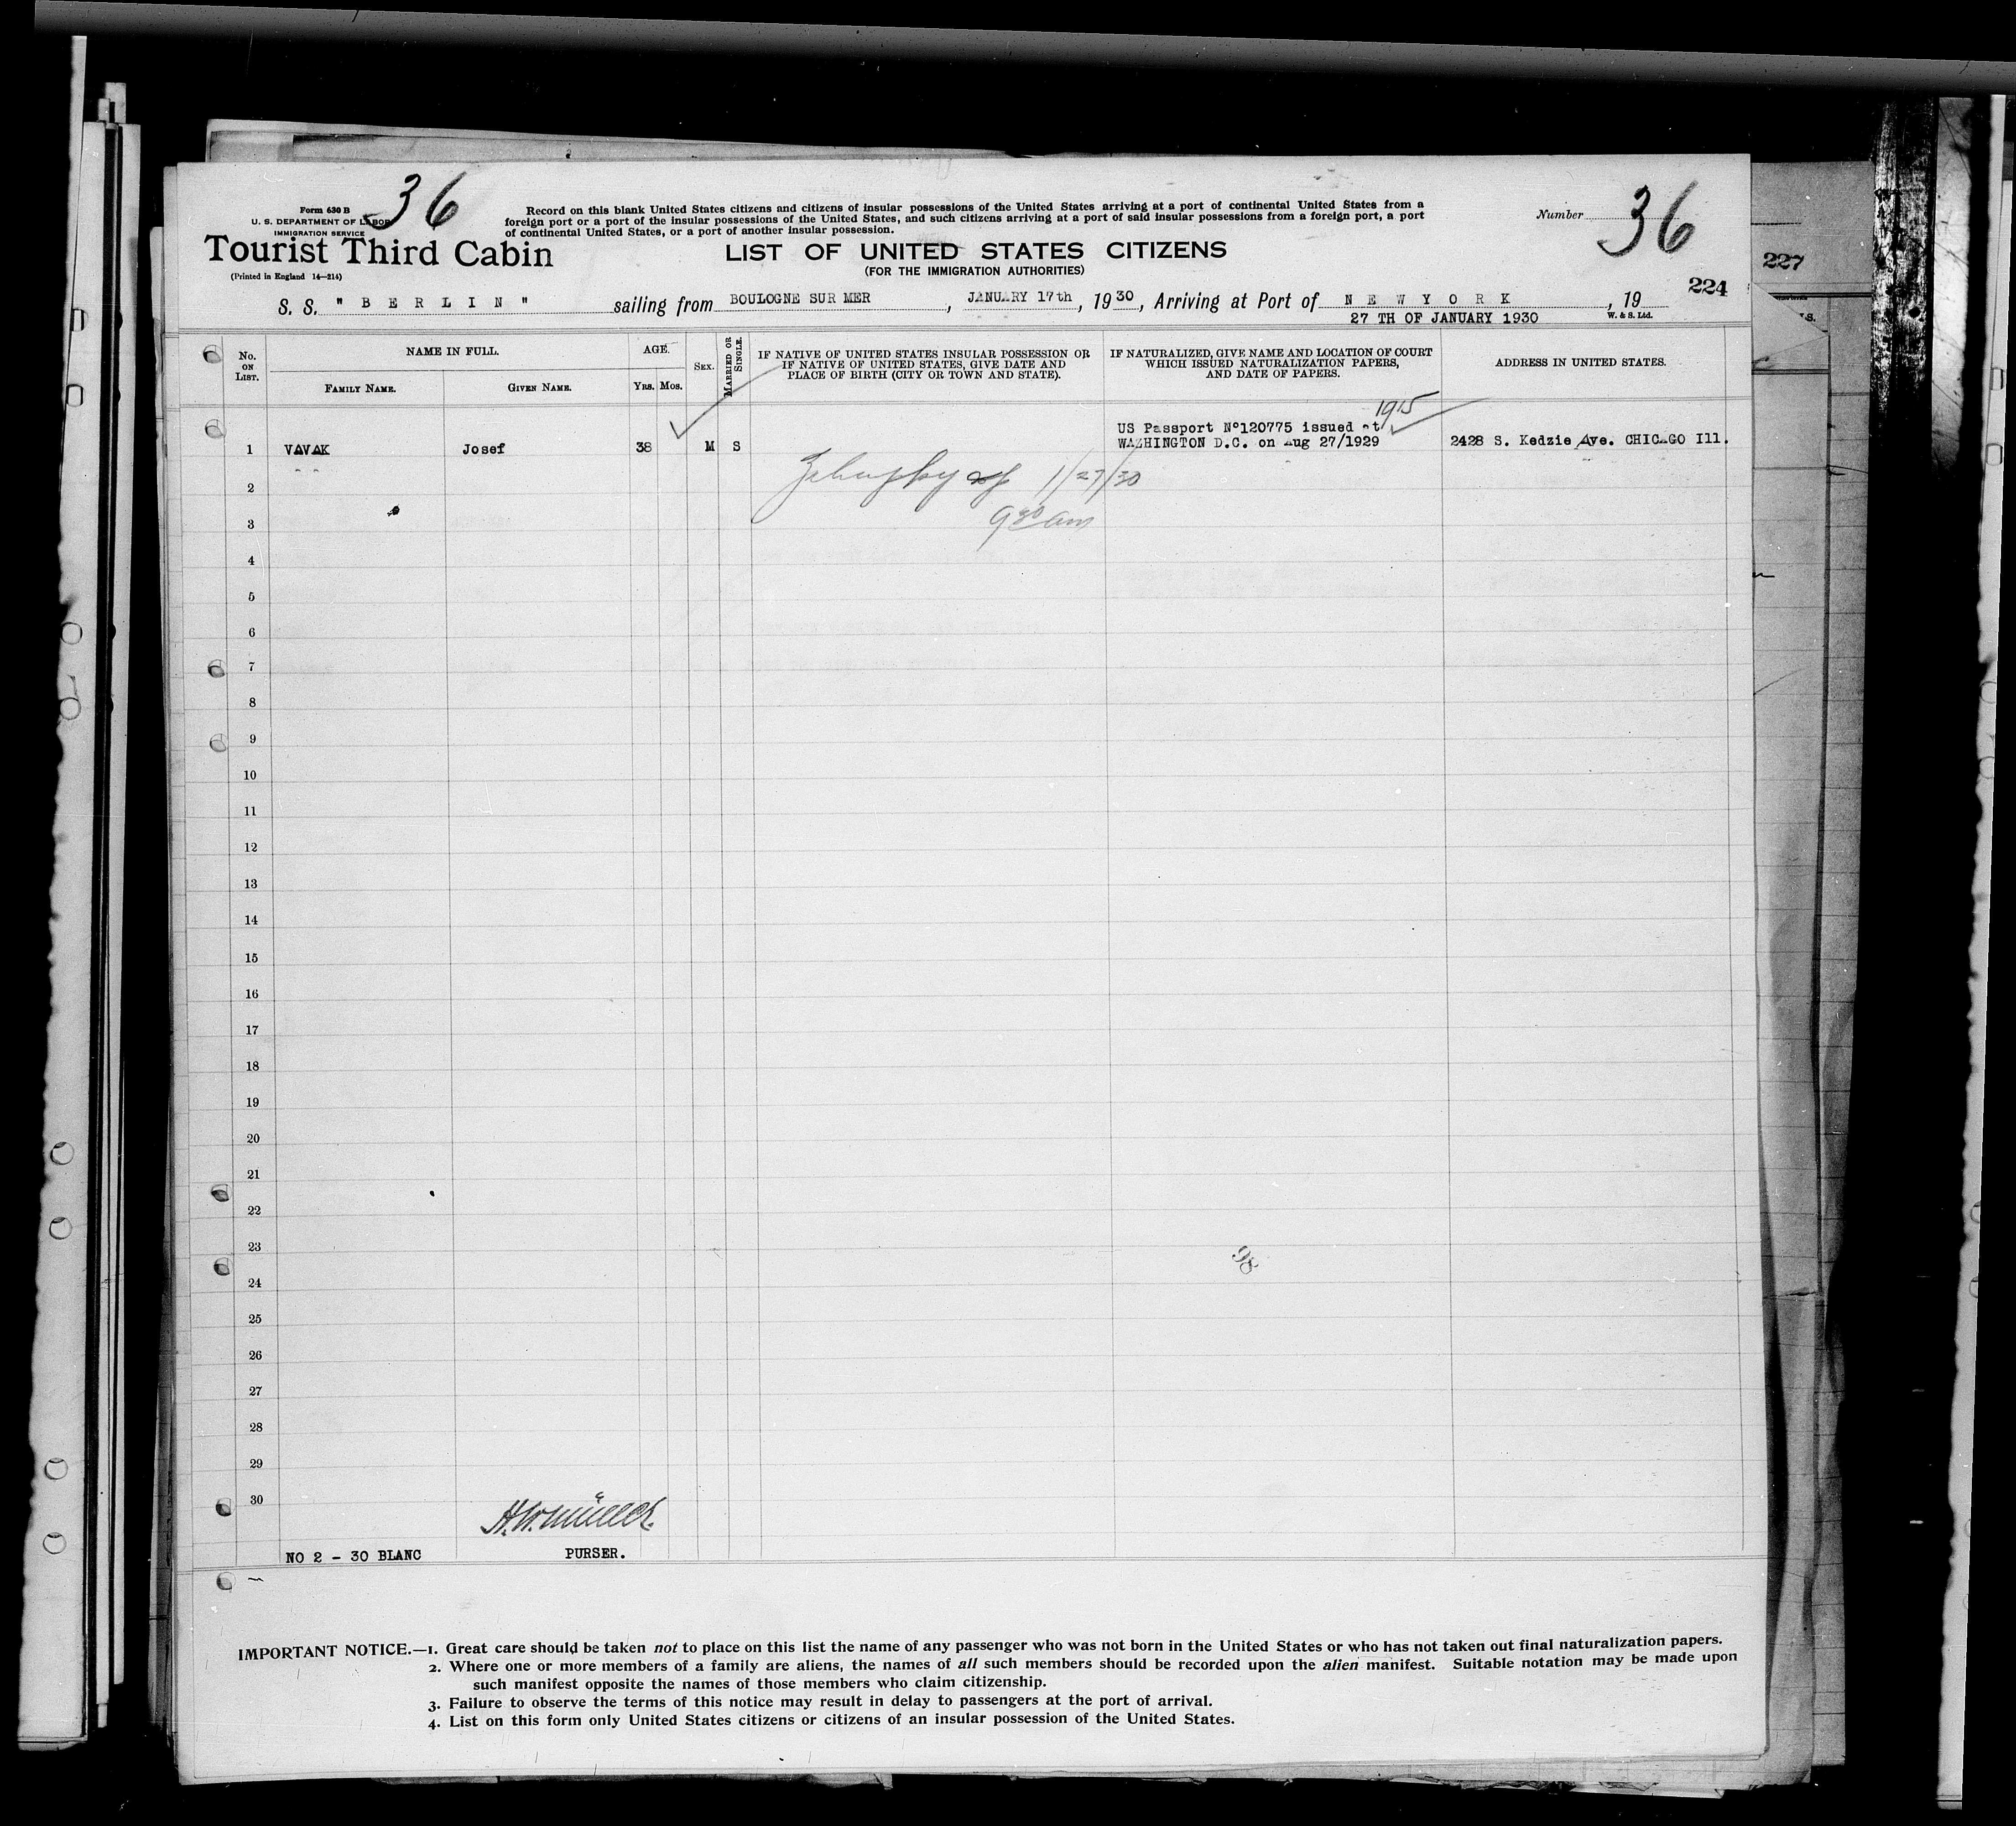 Form 630 B
U. S. DEPARTMENT OF LABOR
IMMIGRATION SERVICE
36
Tourist Third Cabin
(Printed in England 14—214)
Record on this blank United States citizens and citizens of insular possessions of the United States arriving at a port of continental United States from a
foreign port or a port of the insular possessions of the United States, and such citizens arriving at a port of said insular possessions from a foreign port, a port
of continental United States, or a port of another insular possession.
LIST OF UNITED STATES CITIZENS
(FOR THE IMMIGRATION AUTHORITIES)
Number 36
224
227
S. S. " B E R L I N " sailing from BOULOGNE SUR MER, JANUARY 17th, 1930, Arriving at Port of N E W Y O R K, 19
27 TH OF JANUARY 1930
W. & S. Ltd.
No. ON LIST.
NAME IN FULL.
FAMILY NAME.
GIVEN NAME.
AGE.
YRS. MOS.
SEX.
MARRIED OR SINGLE.
IF NATIVE OF UNITED STATES INSULAR POSSESSION OR
IF NATIVE OF UNITED STATES, GIVE DATE AND
PLACE OF BIRTH (CITY OR TOWN AND STATE).
IF NATURALIZED, GIVE NAME AND LOCATION OF COURT
WHICH ISSUED NATURALIZATION PAPERS,
AND DATE OF PAPERS.
ADDRESS IN UNITED STATES.
1915
US Passport Nº120775 issued at
1 VAVAK Josef 38 M S WASHINGTON D.C. on Aug 27/1929 2428 S. Kedzie Ave. CHICAGO Ill.
1/27/30
2
9 30 am
3
4
5
6
7
8
9
10
11
12
13
14
15
16
17
18
19
20
21
22
23
98
24
25
26
27
28
29
30
H. W. Müller.
NO 2 - 30 BLANC PURSER.
IMPORTANT NOTICE.—1. Great care should be taken not to place on this list the name of any passenger who was not born in the United States or who has not taken out final naturalization papers.
2. Where one or more members of a family are aliens, the names of all such members should be recorded upon the alien manifest. Suitable notation may be made upon
such manifest opposite the names of those members who claim citizenship.
3. Failure to observe the terms of this notice may result in delay to passengers at the port of arrival.
4. List on this form only United States citizens or citizens of an insular possession of the United States.